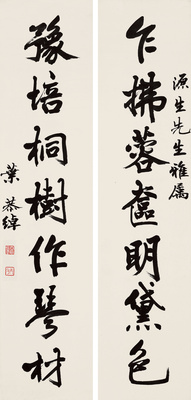 乍拂蓉奩明黛色
源生先生雅属
豫培桐樹作琴材
葉恭綽